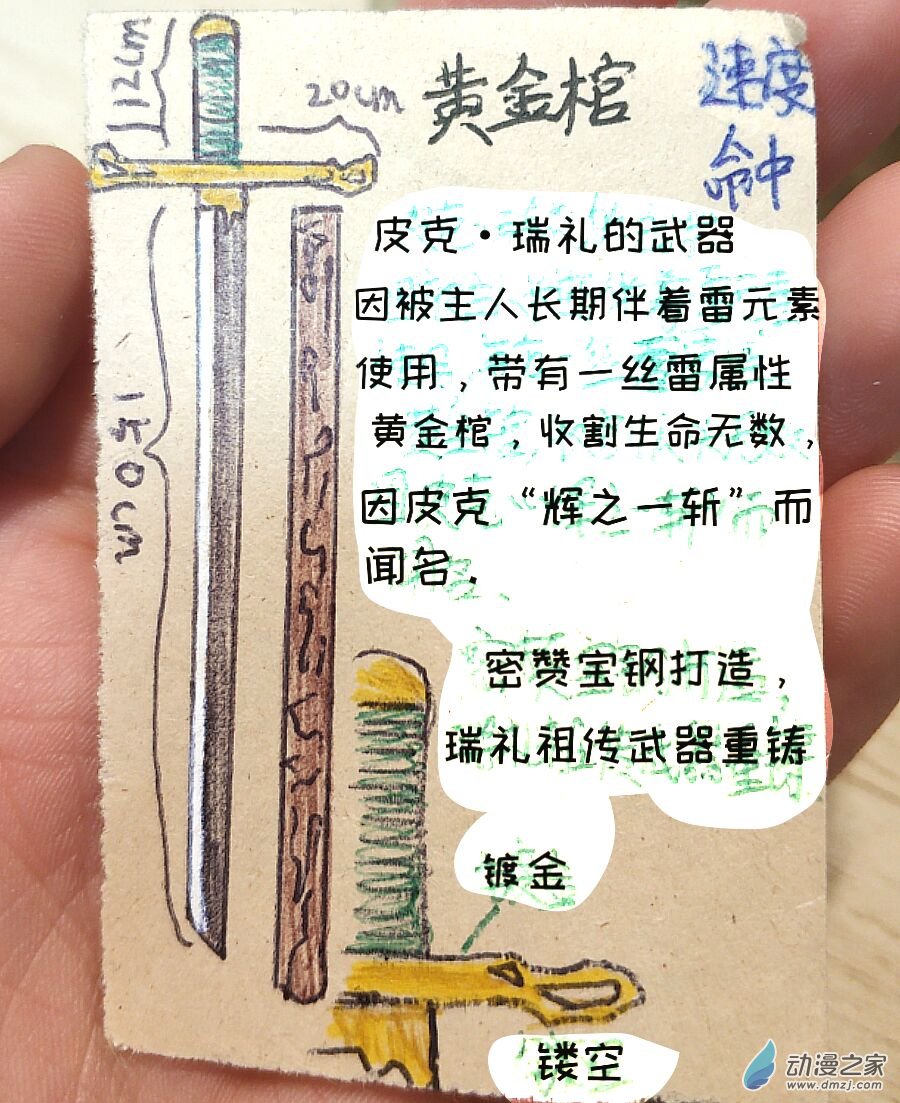 12cm
20cm
黄金棺
速度
命中
皮克·瑞礼的武器
因被主人长期伴着雷元素
使用，带有一丝雷属性
黄金棺，收割生命无数，
因皮克“辉之一斩”而
闻名.
150cm
密赞宝钢打造，
瑞礼祖传武器重铸
镀金
镂空
动漫之家
www.dmzj.com